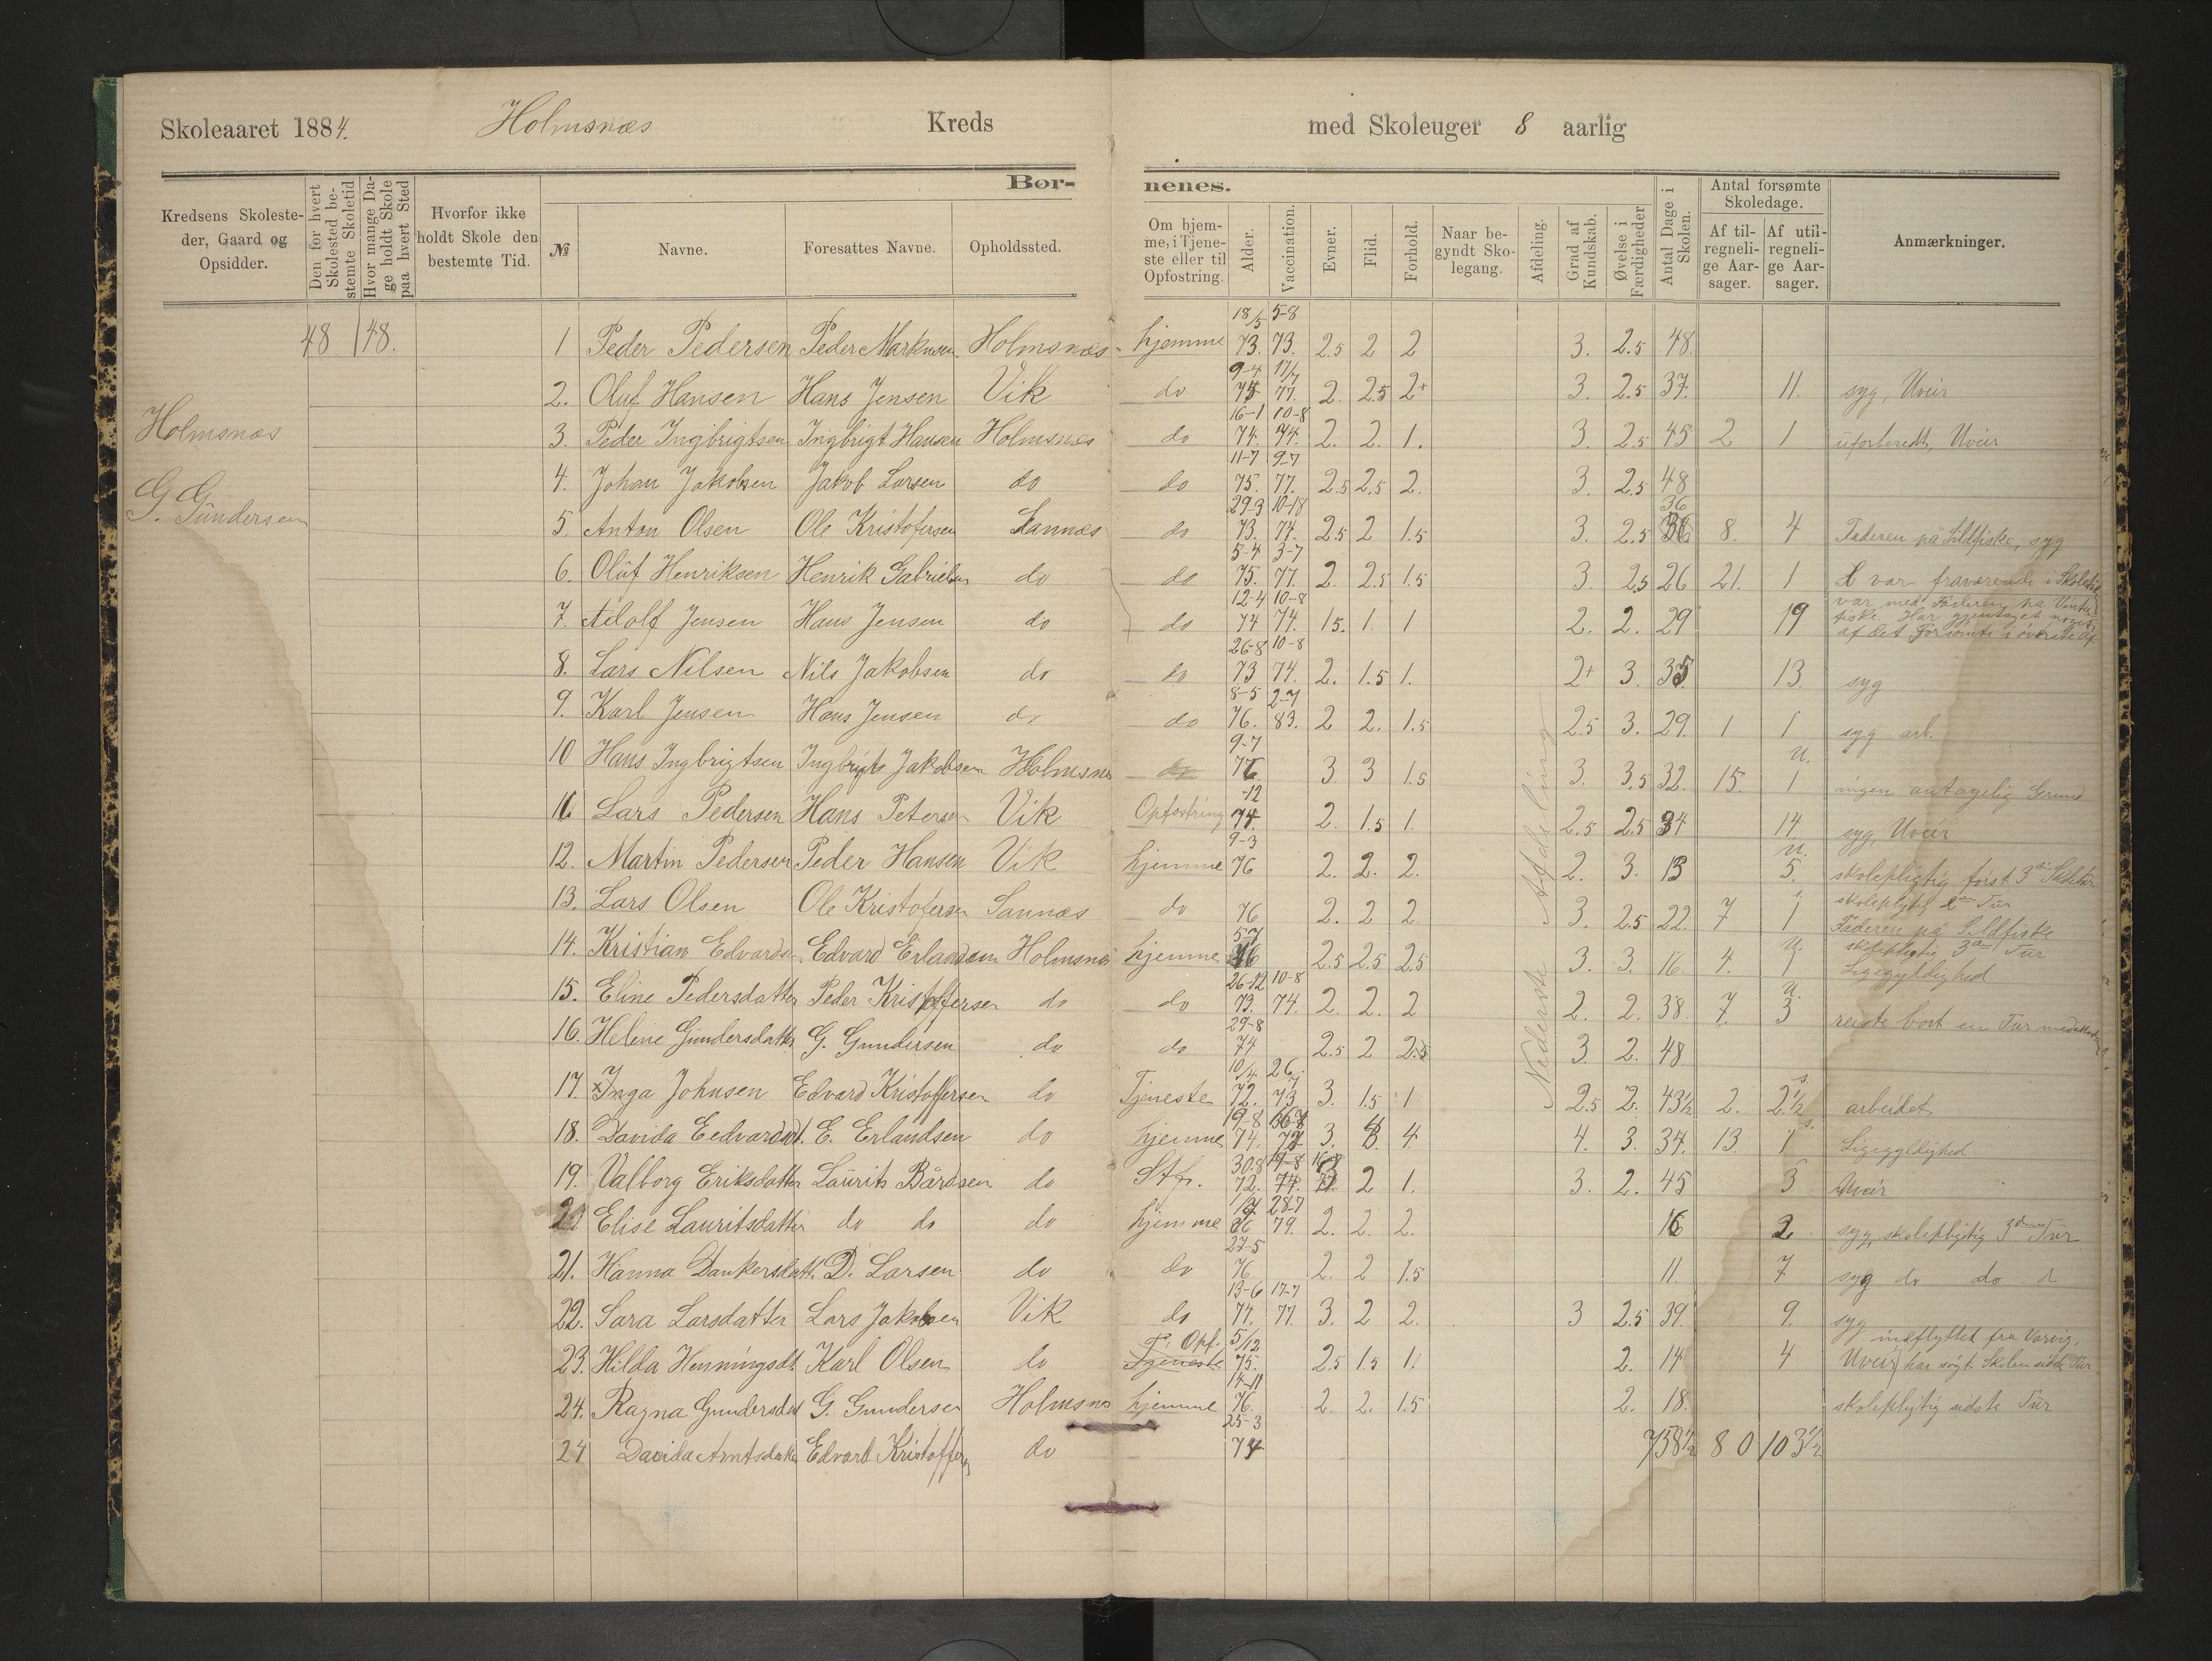 Skoleaaret 1884. Holmsnæs Kreds med Skoleuger 8 aarlig
Børnenes.
Kredsens Skolesteder, Gaard og Opsidder.
Den for hvert Skolested bestemte Skoletid
Hvor mange Dage holdt Skole paa hvert Sted
Hvorfor ikke holdt Skole den bestemte Tid.
№
Navne.
Foresattes Navne.
Opholdssted.
Om hjemme, i Tjeneste eller til Opfostring.
Alder.
Vaccination.
Evner.
Flid.
Forhold.
Naar begyndt Skolegang.
Afdeling.
Grad af Kundskab.
Øvelse i Færdigheder
Antal Dage i Skolen.
Antal forsømte Skoledage.
Af tilregnelige Aarsager.
Af utilregnelige Aarsager.
Anmærkninger.
48 48.
Holmsnæs
G. Gundersen
Nederste Afdeling
1 Peder Pedersen Peder Markusen Holmsnæs hjemme 18/5 73. 5-8 73. 2.5 2 2 3. 2.5 48.
2. Oluf Hansen Hans Jensen Vik do 9-4 75 17/7 77. 2. 2.5 2+ 3. 2.5 37. 11. syg, Uveir
3. Peder Ingbrigtsen Ingbrigt Hansen Holmsnæs do 16-1 74. 10-8 74. 2. 2. 1. 3. 2.5 45 2 1 uforberedt, Uveir
4. Johan Jakobsen Jakob Larsen do do 11-7 75. 9-7 77. 2.5 2.5 2. 3. 2.5 48
5. Anton Olsen Ole Kristofersen Sannæs do 29-3 73. 10-18 74. 2.5 2 1.5 3. 2.5 36 8. 4 Faderen på Sildfiske, syg
6. Oluf Henriksen Henrik Gabrielsen do do 5-4 75. 3-7 77. 2. 2.5 1.5 3. 2.5 26 21. 1 var fraværende i Skoletid
7. Adolf Jensen Hans Jensen do do 12-4 74 10-8 74. 1.5. 1. 1 2. 2. 29 19 var med Faderen på Vinterfiske. Har gjentaget noget af det Forsømte i øverste Afd.
8. Lars Nilsen Nils Jakobsen do do 26-8 73 10-8 74. 2. 1.5 1. 2+ 3. 35. 13. syg
9. Karl Jensen Hans Jensen do do 8-5 76. 2-7 83. 2 2. 1.5 2.5 3. 29. 1 1 syg arb.
10 Hans Ingbrigtsen Ingbrigt Jakobsen Holmsnæs do 9-7 76 3. 3 1.5 3. 3.5 32. 15. 1 ingen antagelig Grund
11 Lars Pedersen Hans Petersen Vik Opfostring -12 74. 2. 1.5 1. 2.5 2.5 34 14 syg, Uveir
12. Martin Pedersen Peder Hansen Vik hjemme 9-3 76 2. 2. 2. 2. 3. 13 5. skolepligtig først 3die Skoletur
13. Lars Olsen Ole Kristofersen Sannæs do 76 2. 2 2 3. 2.5 22. 7 1 skolepligtig 2den Tur Faderen på Sildfiske
14. Kristian Edvardsen Edvard Erlandsen Holmsnæs hjemme 5-7 76 2.5 2.5 2.5 3. 3. 16. 4. 1 skolepligtig 3die Tur Ligegyldighed
15. Eline Pedersdatter Peder Kristoffersen do do 26-12 73. 10-8 74. 2. 2. 2 2. 2. 38. 7. 3 reiste bort en Tur
16. Helene Gundersdatter G. Gundersen do do 29-8 74 2.5 2 2.5 3. 2. 48
17. Inga Johnsen Edvard Kristoffersen do Tjeneste 10/4 72. 26/7 73 3. 1.5 1 2.5 2. 43½ 2. 2½ arbeidet
18. Davida Eedvardsd. E. Erlandsen do hjemme 19-8 74. 72 3. 4 4. 3. 34. 13 1 Ligegyldighed
19. Valborg Eriksdatter Laurits Bårdsen do 30.8 72. 14-8 74. 2 1. 3. 2. 45 3 Uveir
20 Elise Lauritsdatter do do do hjemme 76 28-7 79. 2. 2. 2. 16 2 syg, skolepligtig 3die Tur
21. Hanna Dankersdatt. D. Larsen do do 27-5 76 2. 2 1.5 11. 7 syg do do d
22. Sara Larsdatter Lars Jakobsen Vik do 13-6 74. 17-7 77. 3. 2 2. 3 2.5 39. 9. syg
23. Hilda Henningsdt. Karl Olsen do Tjeneste Opf. 5/12 75. 2.5 1.5 1. 2. 14 4 Uveir indflyttet fra Varvig, har søgt Skolen sidste Tur
24. Ragna Gundersdat G. Gundersen Holmsnæs hjemme 14-11 76. 2. 2. 1.5 2. 18. skolepligtig sidste Tur
24 Davida Arntsdatter Edvard Kristoffersen do 25-3 74
758½ 80 103½